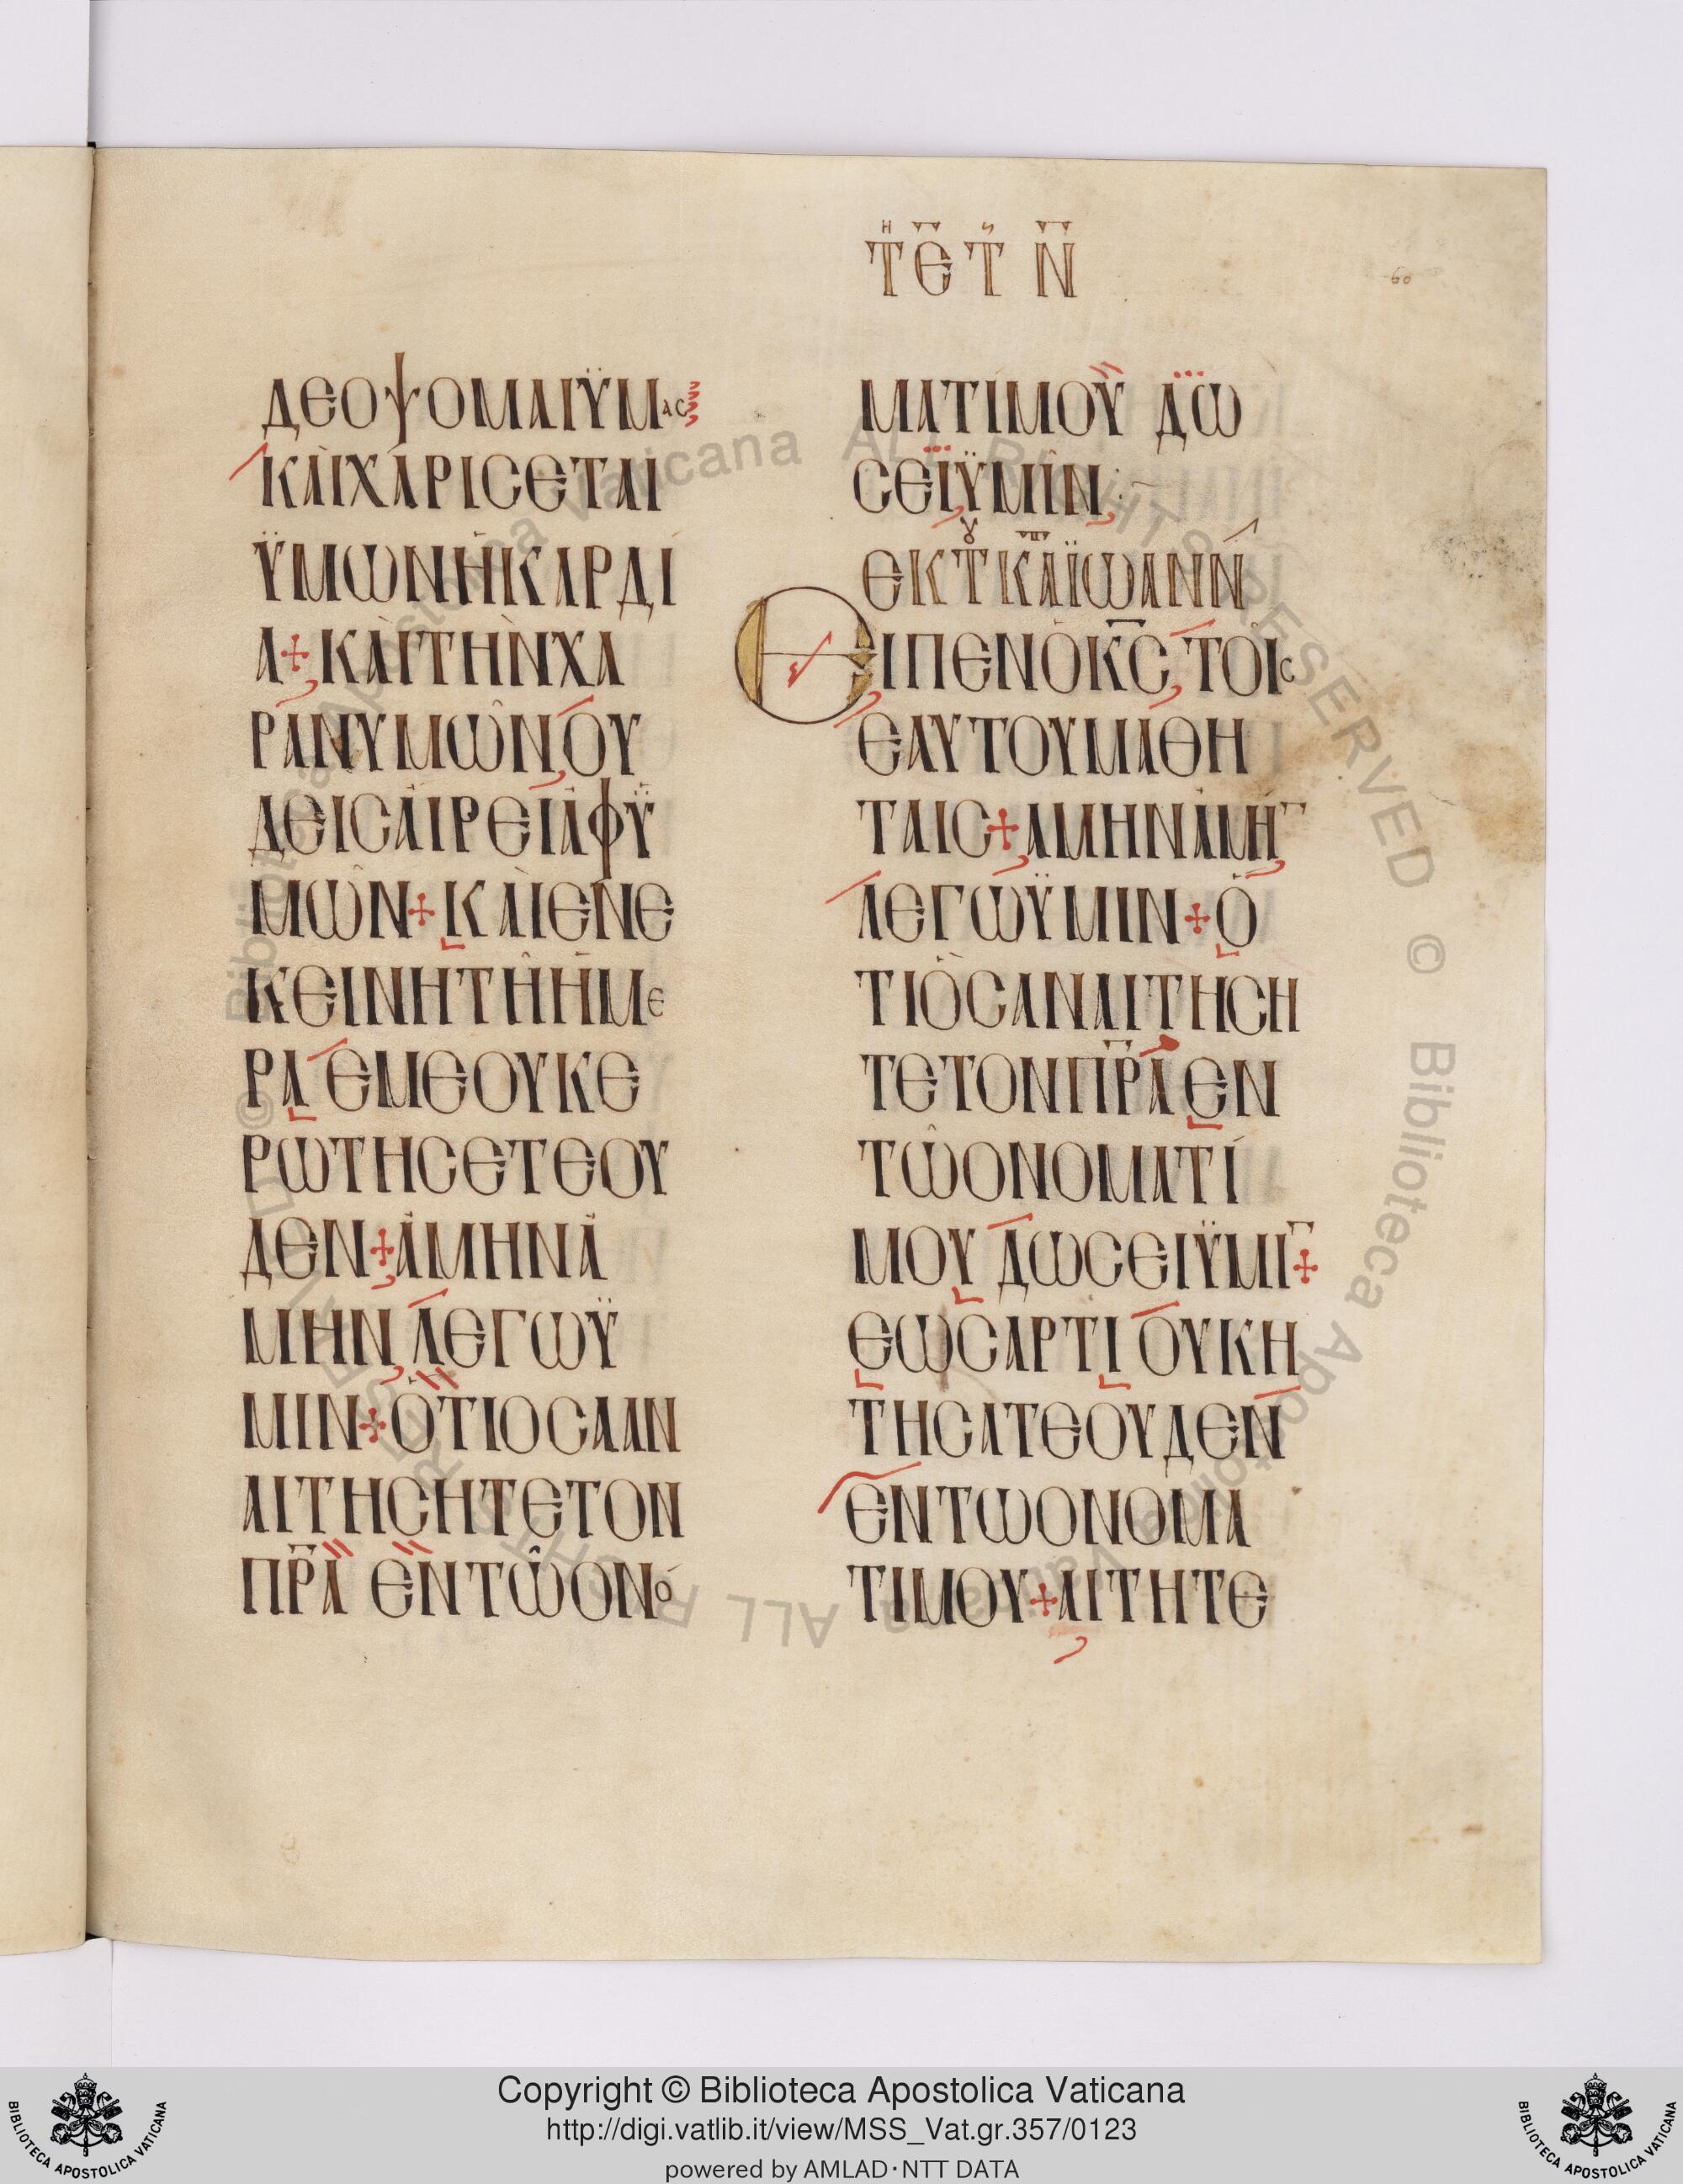 Τῌ Ε̄ Τῌ Ν̄
60
ΔΕΟΨΟΜΑΙΫΜΑС
ΚΑῚΧΆΡΙСΕΤΑΙ
ΫΜΩΝΗΚΑΡΔΙ
Α+ΚΑῚΤΗΝΧΑ
ΡΑΝΥΜΩ͂ΝΟΥ
ΔΕΙСΑΙΡΕΙΑΦΫ
ΜΩ͂Ν+ΚΑῚΕΝΕ
ΚΕΙΝΗΤΗΗΜΕ
ΡΑΕΜΕΟΥΚΕ
ΡΩΤΗСΕΤΕΟΥ
ΔΕΝ+ΑΜΗΝΑ
ΜΗΝΛΕΓΩΫ
ΜΙΝ+ΟΤΙΟСΑΑΝ
ΑΙΤΗСΗΤΕΤΟΝ
Π̅Ρ̅Α̅ ΕΝΤΩ͂ΟΝΟ
ΜΑΤΙΜΟΥ ΔΩ
СΕΙΫΜΙΝ
ΕΚΤΚΑΪΩΑΝΝ
ΕΙΠΕΝΟΚ̅С̅ΤΟΙС
ΕΑΥΤΟΥΜΑΘΗ
ΤΑΙС+ΑΜΗΝΑΜΗ̅
ΛΕΓΩΫΜΙΝ+Ο
ΤΙΟСΑΝΑΙΤΗСΗ
ΤΕΤΟΝΠ̅Ρ̅Α̅ΕΝ
ΤΩ͂ΟΝΟΜΑΤΙ
ΜΟΥΔΩСΕΙΫΜΙ̅+
ΕΩСΑΡΤΙΟΥΚΗ
ΤΗСΑΤΕΟΥΔΕΝ
ΕΝΤΩΟΝΟΜΑ
ΤΙΜΟΥ+ΑΙΤΗΤΕ
© Biblioteca Apostolica Vaticana ALL RIGHTS RESERVED © Biblioteca Apostolica Vaticana ALL RIGHTS RESERVED
Copyright © Biblioteca Apostolica Vaticana
http://digi.vatlib.it/view/MSS_Vat.gr.357/0123
powered by AMLAD·NTT DATA
BIBLIOTECA APOSTOLICA VATICANA
BIBLIOTECA APOSTOLICA VATICANA